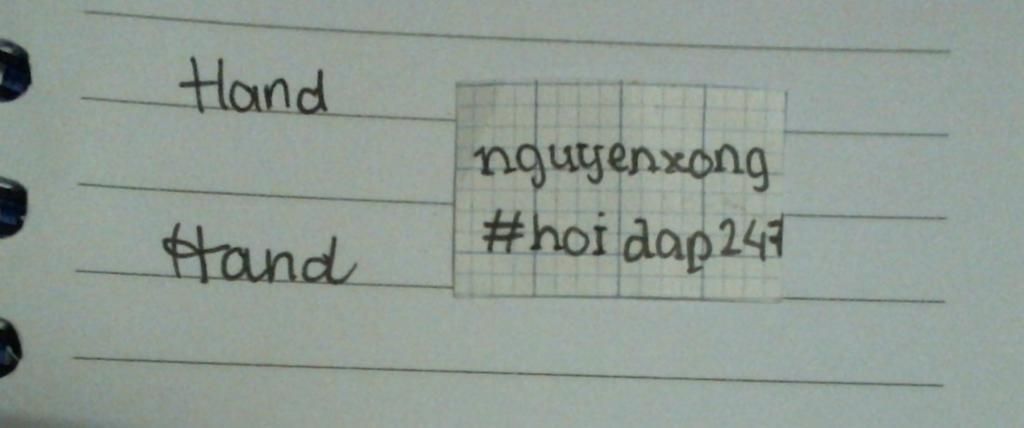 Hand
nguyenxong
#hoidap247
Hand